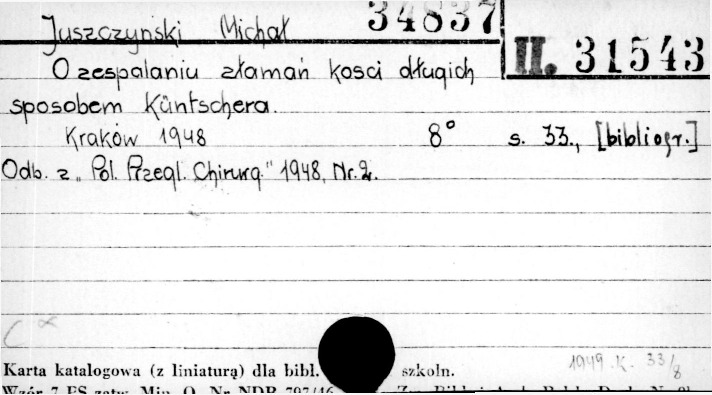 Juszczyński Michał 34837
II. 31543
O zespalaniu złamań kosci długich
sposobem Küntschera.
Kraków 1948 8° s. 33., [bibliogr.]
Odb. z „Pol. Przegl. Chirurg." 1948, Nr. 2.
1949. K. 33/8
Karta katalogowa (z liniaturą) dla bibl. szkoln.
Wzór 7 PS zatw. Min. O. Nr NDB 797/46